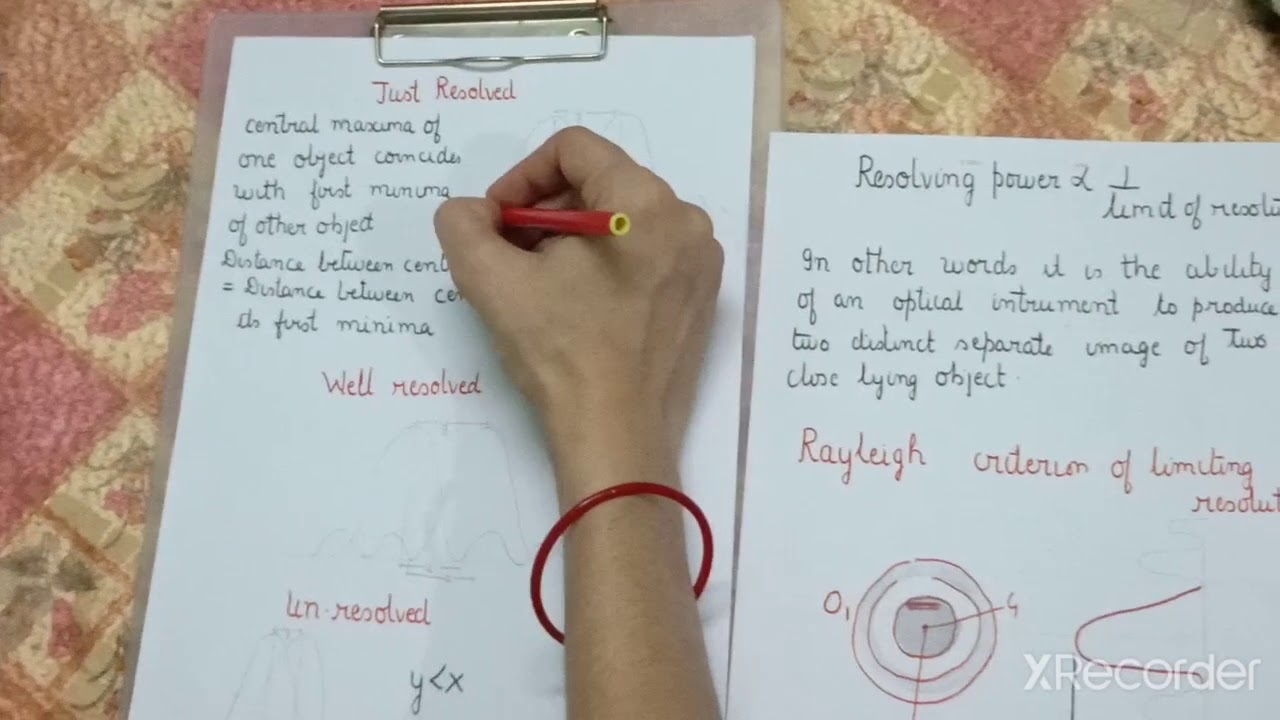 Just Resolved
central maxima of
one object coincides
with first minima
of other object
Distance between cent
= Distance between cen
its first minima
Well resolved
Un-resolved
y<x
Resolving power ∝ 1
limit of resolu
In other words it is the ability
of an optical intrument to produce
two distinct separate image of Two
close lying object.
Rayleigh criterion of limiting
resolut
O1
XRecorder